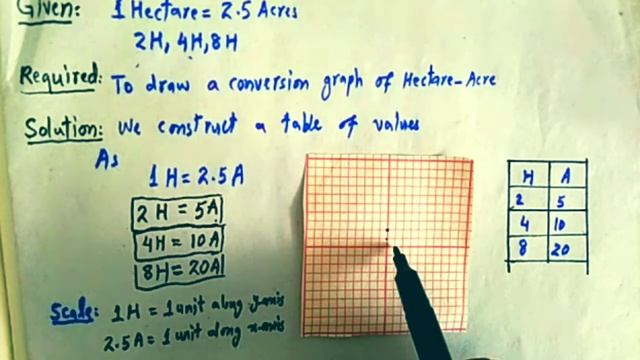 Given: 1 Hectare = 2.5 Acres
2H, 4H, 8H
Required: To draw a conversion graph of Hectare-Acre
Solution: We construct a table of values
As
1 H = 2.5 A
2 H = 5A
4H = 10A
8H = 20A
Scale: 1H = 1 unit along y-axis
2.5A = 1 unit along x-axis
H A
2 5
4 10
8 20